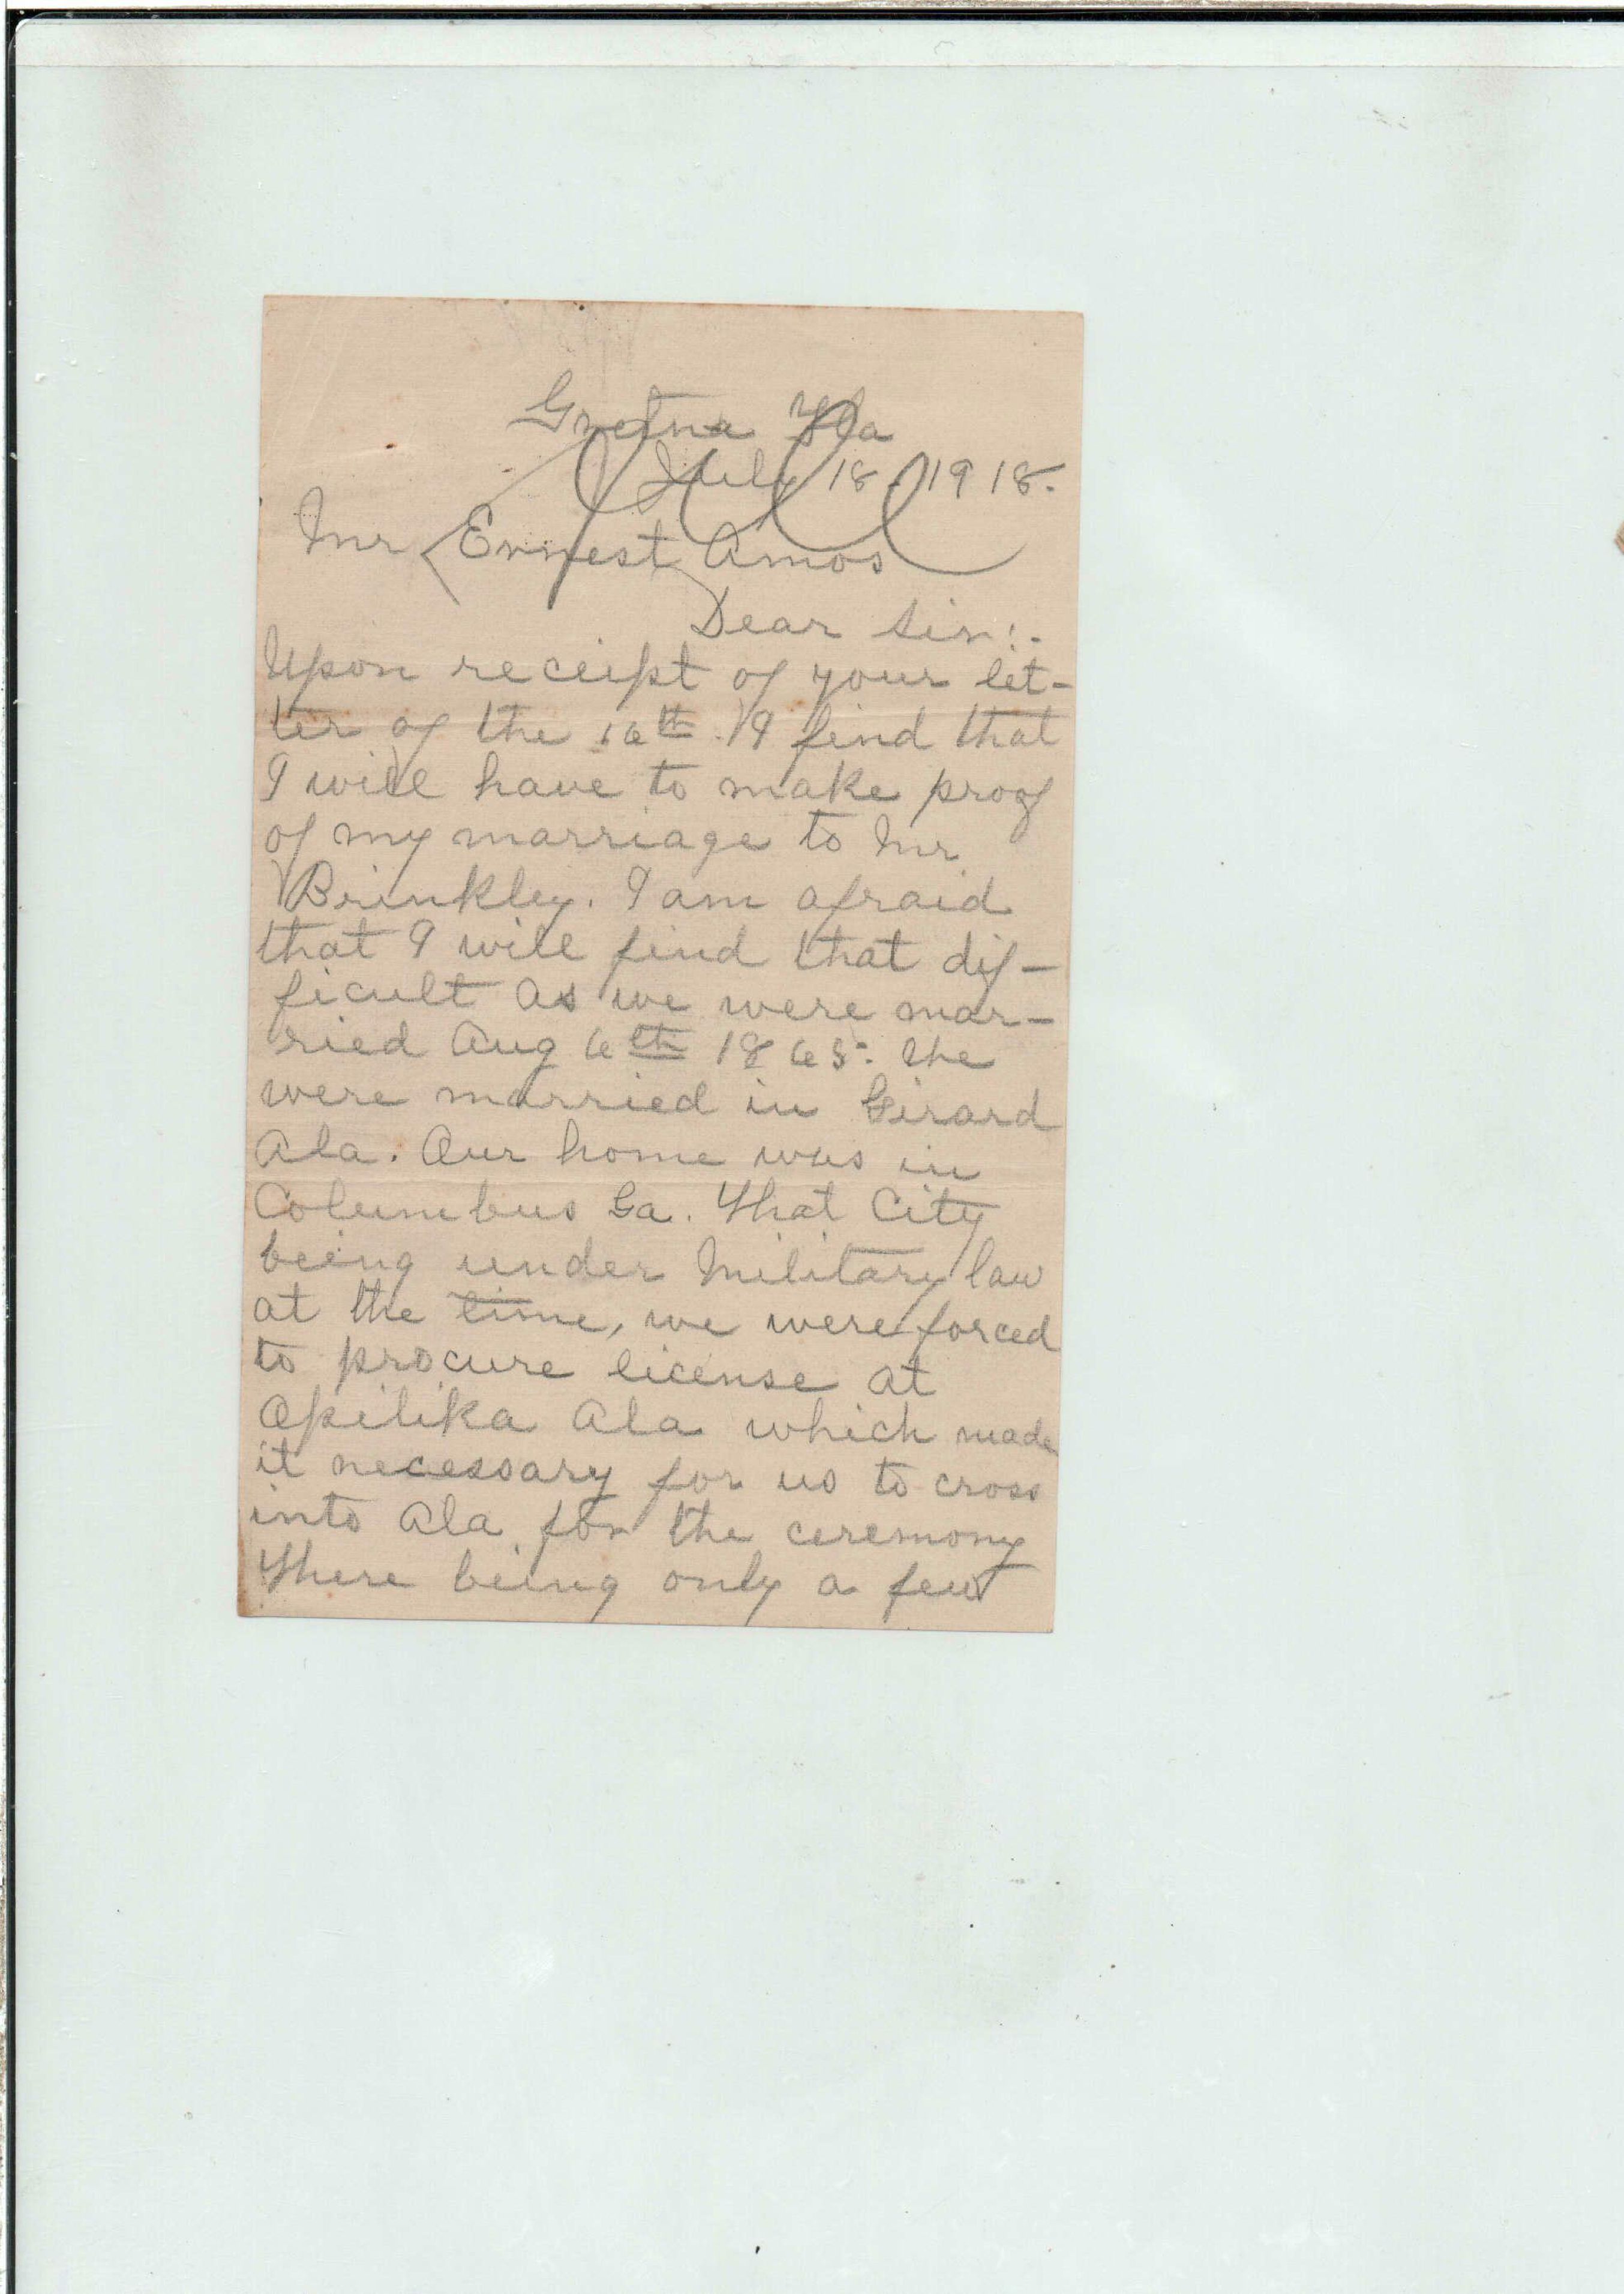 Gretna Fla
July 18 - 1918.
Mr Ernest Amos
Dear Sir:-
Upon receipt of your let-
ter of the 16th I find that
I will have to make proof
of my marriage to Mr
Brinkley. I am afraid
that I will find that dif-
ficult as we were mar-
ried Aug 6th 1865. We
were married in Girard
Ala. Our home was in
Columbus Ga. That City
being under Military law
at the time, we were forced
to procure license at
Opilika Ala which made
it necessary for us to cross
into Ala for the ceremony
There being only a few